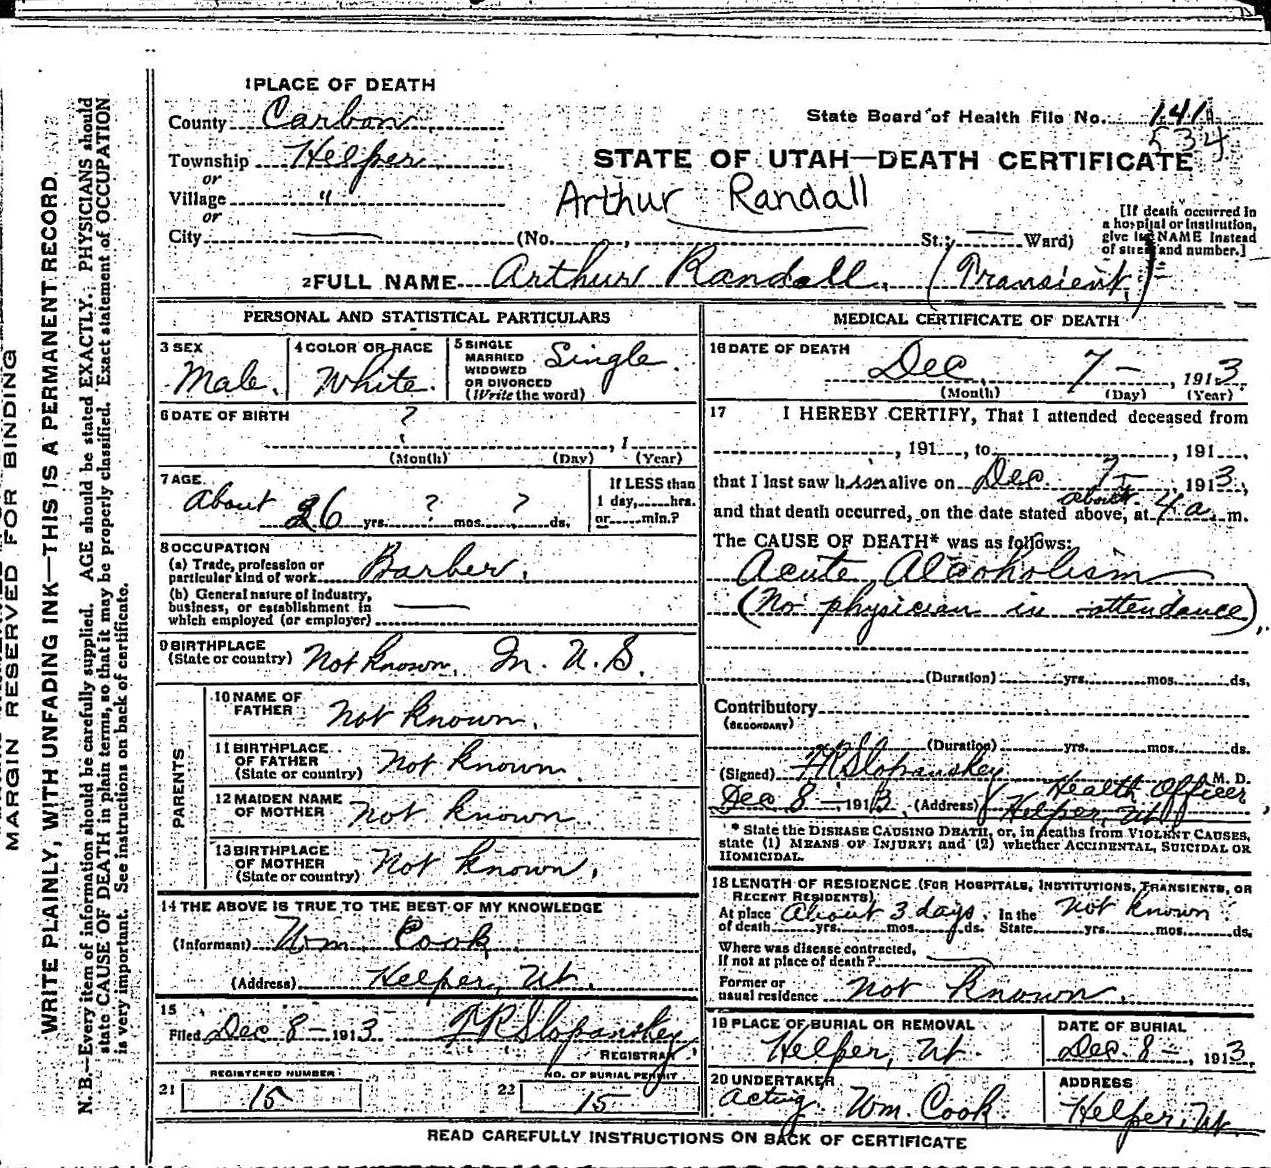 1 PLACE OF DEATH
County Carbon
State Board of Health File No. 141
534
Township Helper
or
STATE OF UTAH—DEATH CERTIFICATE
Village "
or
Arthur Randall
City (No. , St.; Ward)
[If death occurred in
a hospital or institution,
give its NAME instead
of street and number.]
2 FULL NAME Arthur Randall, (Transient,)
PERSONAL AND STATISTICAL PARTICULARS
3 SEX
Male.
4 COLOR OR RACE
White.
5 SINGLE
MARRIED
WIDOWED
OR DIVORCED
(Write the word)
Single.
6 DATE OF BIRTH ?
, 1
(Month) (Day) (Year)
7 AGE
About 26 yrs. ? mos. ? ds.
If LESS than
1 day, hrs.
or min.?
8 OCCUPATION
(a) Trade, profession or
particular kind of work Barber.
(b) General nature of industry,
business, or establishment in
which employed (or employer)
9 BIRTHPLACE
(State or country) Not known. In. U.S.
PARENTS
10 NAME OF
FATHER Not known.
11 BIRTHPLACE
OF FATHER
(State or country) Not known.
12 MAIDEN NAME
OF MOTHER Not known.
13 BIRTHPLACE
OF MOTHER
(State or country) Not known.
14 THE ABOVE IS TRUE TO THE BEST OF MY KNOWLEDGE
(Informant) Wm. Cook.
(Address) Helper, Ut.
15
Filed Dec 8 – 1913 F R Slopanskey
REGISTRAR
21 REGISTERED NUMBER
15
22 NO. OF BURIAL PERMIT
15
MEDICAL CERTIFICATE OF DEATH
16 DATE OF DEATH
Dec. 7 –, 1913.
(Month) (Day) (Year)
17 I HEREBY CERTIFY, That I attended deceased from
, 191 , to , 191 ,
that I last saw him alive on Dec. 7 – 1913.,
about
and that death occurred, on the date stated above, at 4 a. m.
The CAUSE OF DEATH* was as follows:
Acute Alcoholism
(No physician in attendance),
(Duration) yrs. mos. ds.
Contributory
(SECONDARY)
(Duration) yrs. mos. ds.
(Signed) F R Slopanskey M. D.
Health Officer
Dec 8 – 1913. (Address) Helper, Ut
* State the DISEASE CAUSING DEATH, or, in deaths from VIOLENT CAUSES,
state (1) MEANS OF INJURY; and (2) whether ACCIDENTAL, SUICIDAL OR
HOMICIDAL.
18 LENGTH OF RESIDENCE (FOR HOSPITALS, INSTITUTIONS, TRANSIENTS, OR
RECENT RESIDENTS)
At place About 3 days. In the Not known.
of death yrs. mos. ds. State yrs. mos. ds.
Where was disease contracted,
If not at place of death?
Former or
usual residence Not known.
19 PLACE OF BURIAL OR REMOVAL
Helper, Ut.
DATE OF BURIAL
Dec. 8 –, 1913
20 UNDERTAKER
Acting. Wm. Cook.
ADDRESS
Helper, Ut.
READ CAREFULLY INSTRUCTIONS ON BACK OF CERTIFICATE
MARGIN RESERVED FOR BINDING
WRITE PLAINLY, WITH UNFADING INK—THIS IS A PERMANENT RECORD.
N. B.—Every item of information should be carefully supplied. AGE should be stated EXACTLY. PHYSICIANS should
state CAUSE OF DEATH in plain terms, so that it may be properly classified. Exact statement of OCCUPATION
is very important. See instructions on back of certificate.